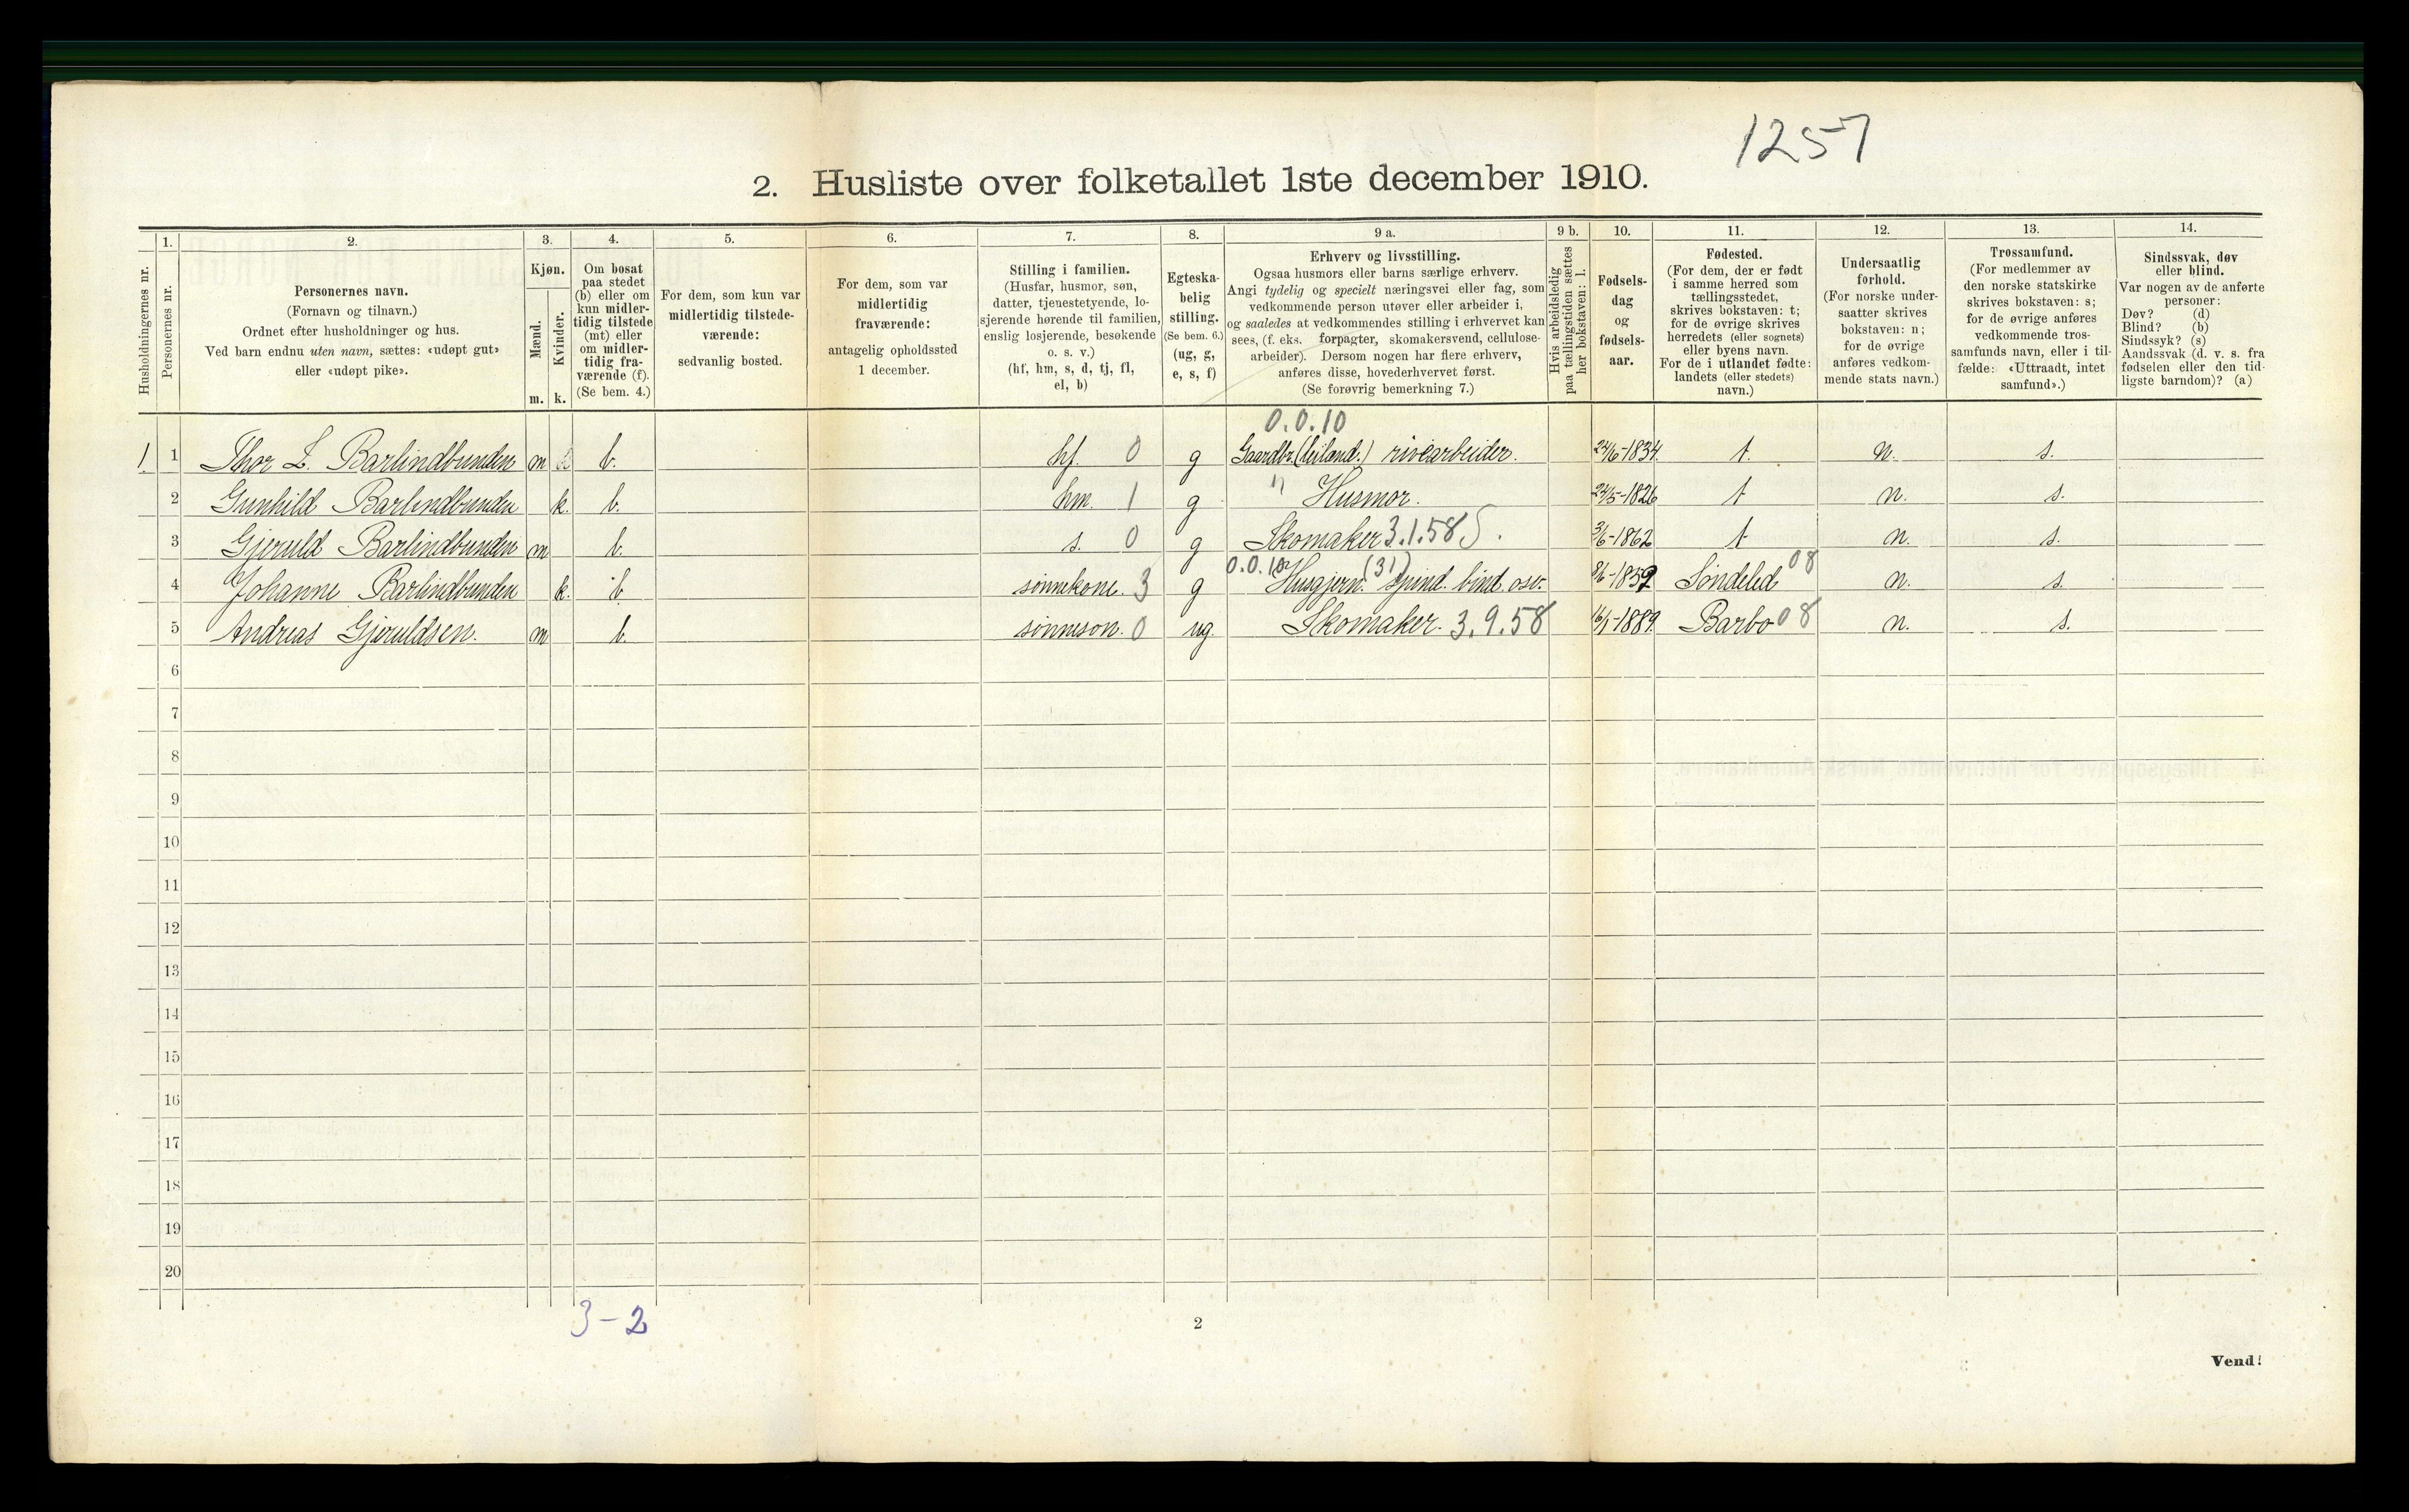 1257
2. Husliste over folketallet 1ste december 1910.
Husholdningernes nr.
1.
Personernes nr.
2.
Personernes navn.
(Fornavn og tilnavn.)
Ordnet efter husholdninger og hus.
Ved barn endnu uten navn, sættes: «udøpt gut»
eller «udøpt pike».
3.
Kjøn.
Mænd.
Kvinder.
m. k.
4.
Om bosat
paa stedet
(b) eller om
kun midler-
tidig tilstede
(mt) eller
om midler-
tidig fra-
værende (f).
(Se bem. 4.)
5.
For dem, som kun var
midlertidig tilstede-
værende:
sedvanlig bosted.
6.
For dem, som var
midlertidig
fraværende:
antagelig opholdssted
1 december.
7.
Stilling i familien.
(Husfar, husmor, søn,
datter, tjenestetyende, lo-
sjerende hørende til familien,
enslig losjerende, besøkende
o. s. v.)
(hf, hm, s, d, tj, fl,
el, b)
8.
Egteska-
belig
stilling.
(Se bem. 6.)
(ug, g,
e, s, f)
9 a.
Erhverv og livsstilling.
Ogsaa husmors eller barns særlige erhverv.
Angi tydelig og specielt næringsvei eller fag, som
vedkommende person utøver eller arbeider i,
og saaledes at vedkommendes stilling i erhvervet kan
sees, (f. eks. forpagter, skomakersvend, cellulose-
arbeider). Dersom nogen har flere erhverv,
anføres disse, hovederhvervet først.
(Se forøvrig bemerkning 7.)
9 b.
Hvis arbeidsledig
paa tællingstiden sættes
her bokstaven: l.
10.
Fødsels-
dag
og
fødsels-
aar.
11.
Fødested.
(For dem, der er født
i samme herred som
tællingsstedet,
skrives bokstaven: t;
for de øvrige skrives
herredets (eller sognets)
eller byens navn.
For de i utlandet fødte:
landets (eller stedets)
navn.)
12.
Undersaatlig
forhold.
(For norske under-
saatter skrives
bokstaven: n;
for de øvrige
anføres vedkom-
mende stats navn.)
13.
Trossamfund.
(For medlemmer av
den norske statskirke
skrives bokstaven: s;
for de øvrige anføres
vedkommende tros-
samfunds navn, eller i til-
fælde: «Uttraadt, intet
samfund».)
14.
Sindssvak, døv
eller blind.
Var nogen av de anførte
personer:
Døv? (d)
Blind? (b)
Sindssyk? (s)
Aandssvak (d. v. s. fra
fødselen eller den tid-
ligste barndom)? (a)
0.0.10
1 1 Thor L. Barlindbunden m b. hf. 0 g Gaardbr. (leiland.) rivearbeider. 24/6-1834 t. n. s.
2 Gunhild Barlindbunden k. b. hm. 1 g " Husmor. 24/5-1826 t n. s.
3 Gjeruld Barlindbunden m b. s. 0 g Skomaker 3.1.58 S. 3/6-1862 t n. s.
0.0.10 (31)
4 Johanne Barlindbunden k. b sønnekone. 3 g Husgjern. spind. bind. osv. 8/6-1859 Søndeled 08 n. s.
5 Andreas Gjeruldsen. m b. sønneson. 0 ug. Skomaker. 3.9.58 16/1-1889. Barbo 08 n. s.
6
7
8
9
10
11
12
13
14
15
16
17
18
19
20
3-2
2
Vend!